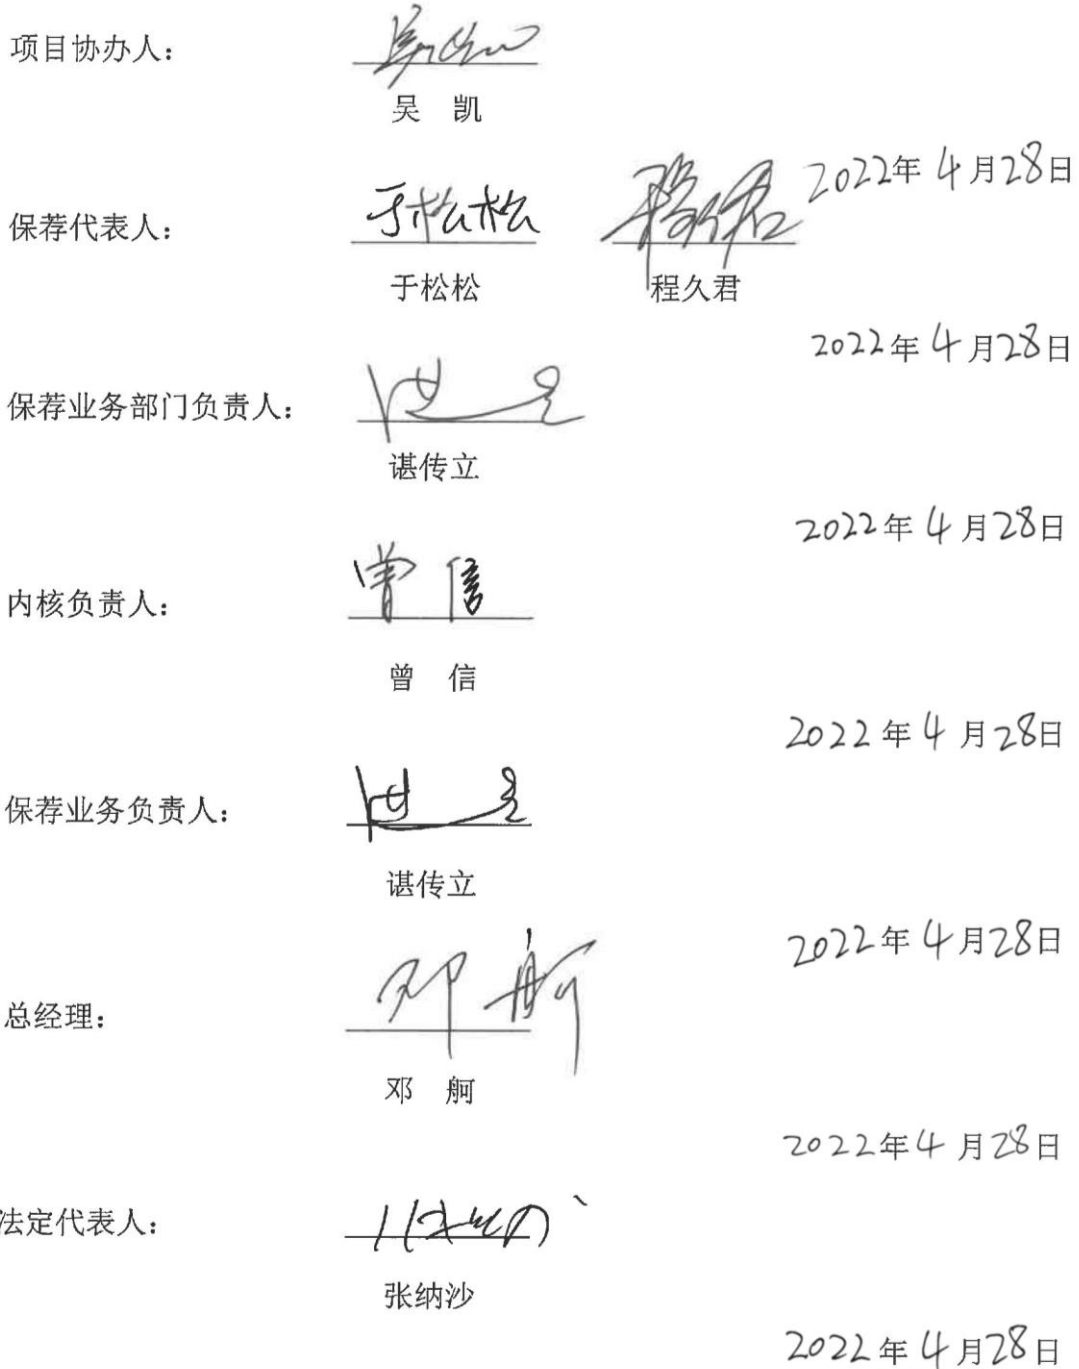 项目协办人：
吴 凯
2022年4月28日
保荐代表人： 于松松
于松松 程久君
2022年4月28日
保荐业务部门负责人：
谌传立
2022年4月28日
内核负责人： 曾信
曾 信
2022年4月28日
保荐业务负责人：
谌传立
2022年4月28日
总经理： 邓舸
邓 舸
2022年4月28日
法定代表人：
张纳沙
2022年4月28日